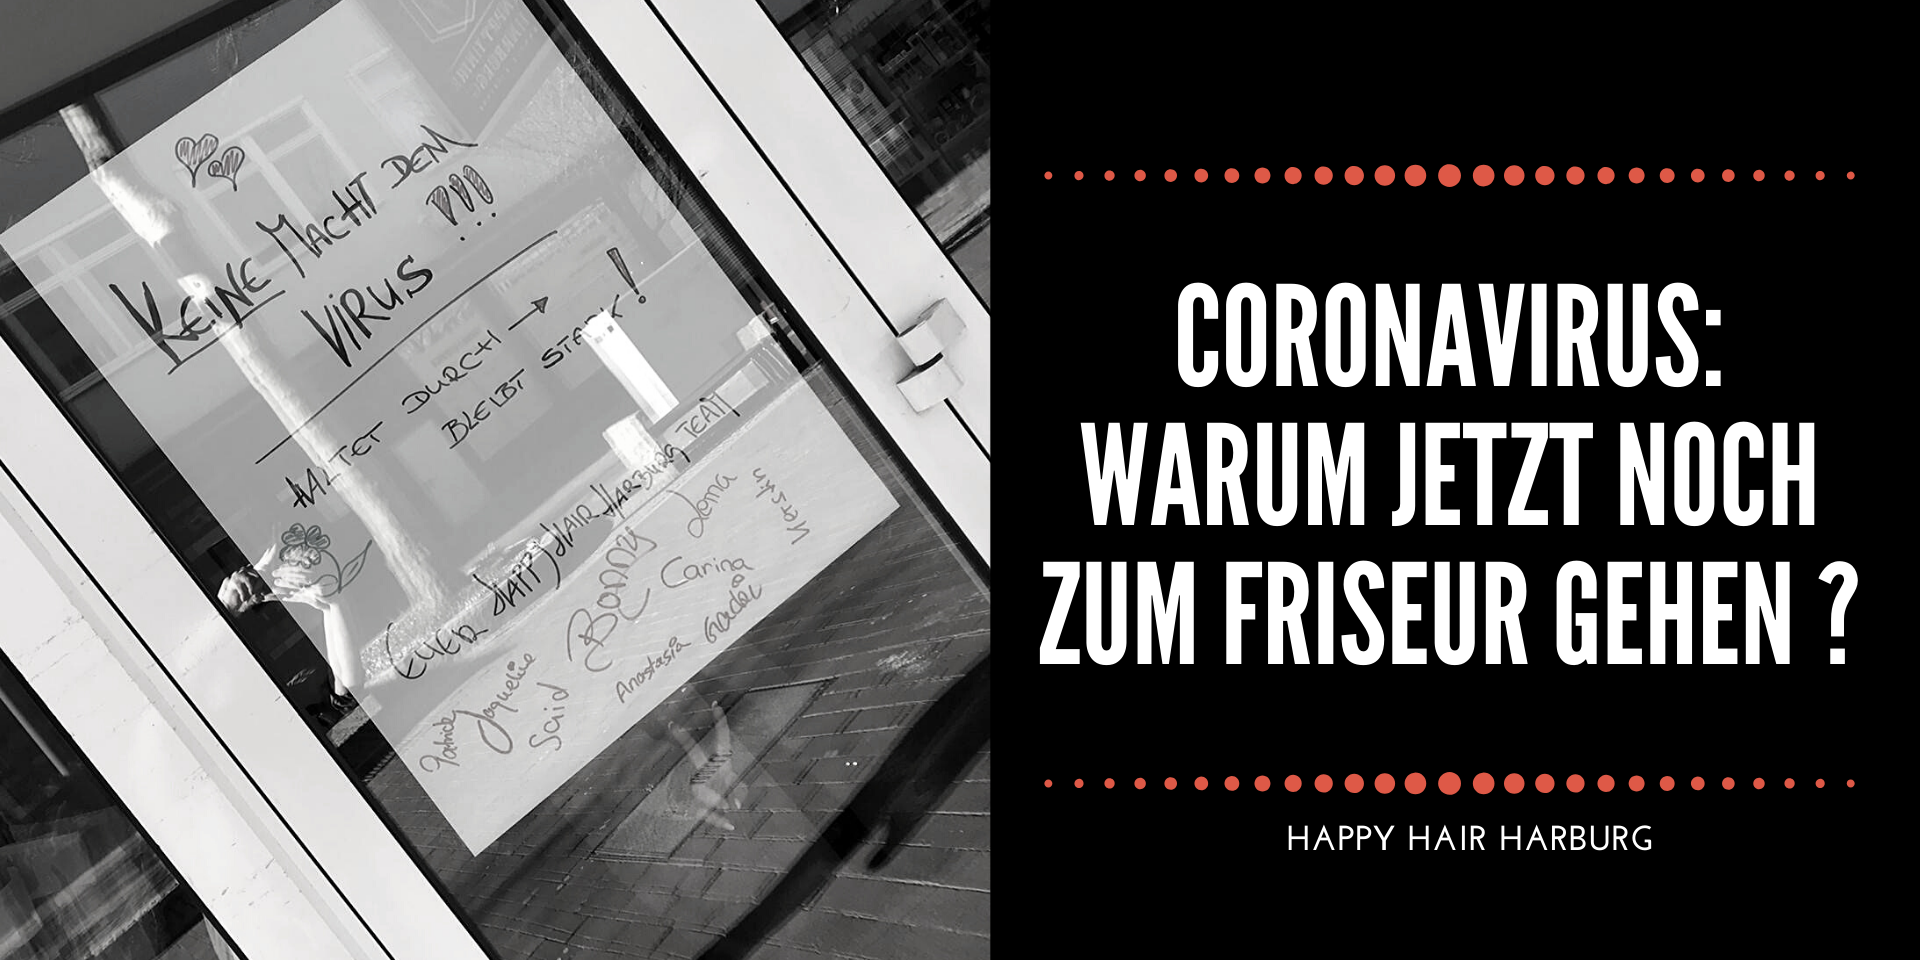 KEINE MACHT DEM
VIRUS !!!
HALTET DURCH →
BLEIBT STARK!
EUER HAPPY HAIR HARBURG TEAM
Jaqueline
Said
Bonny
Anastasia
Carina
Lena
CORONAVIRUS:
WARUM JETZT NOCH
ZUM FRISEUR GEHEN ?
HAPPY HAIR HARBURG